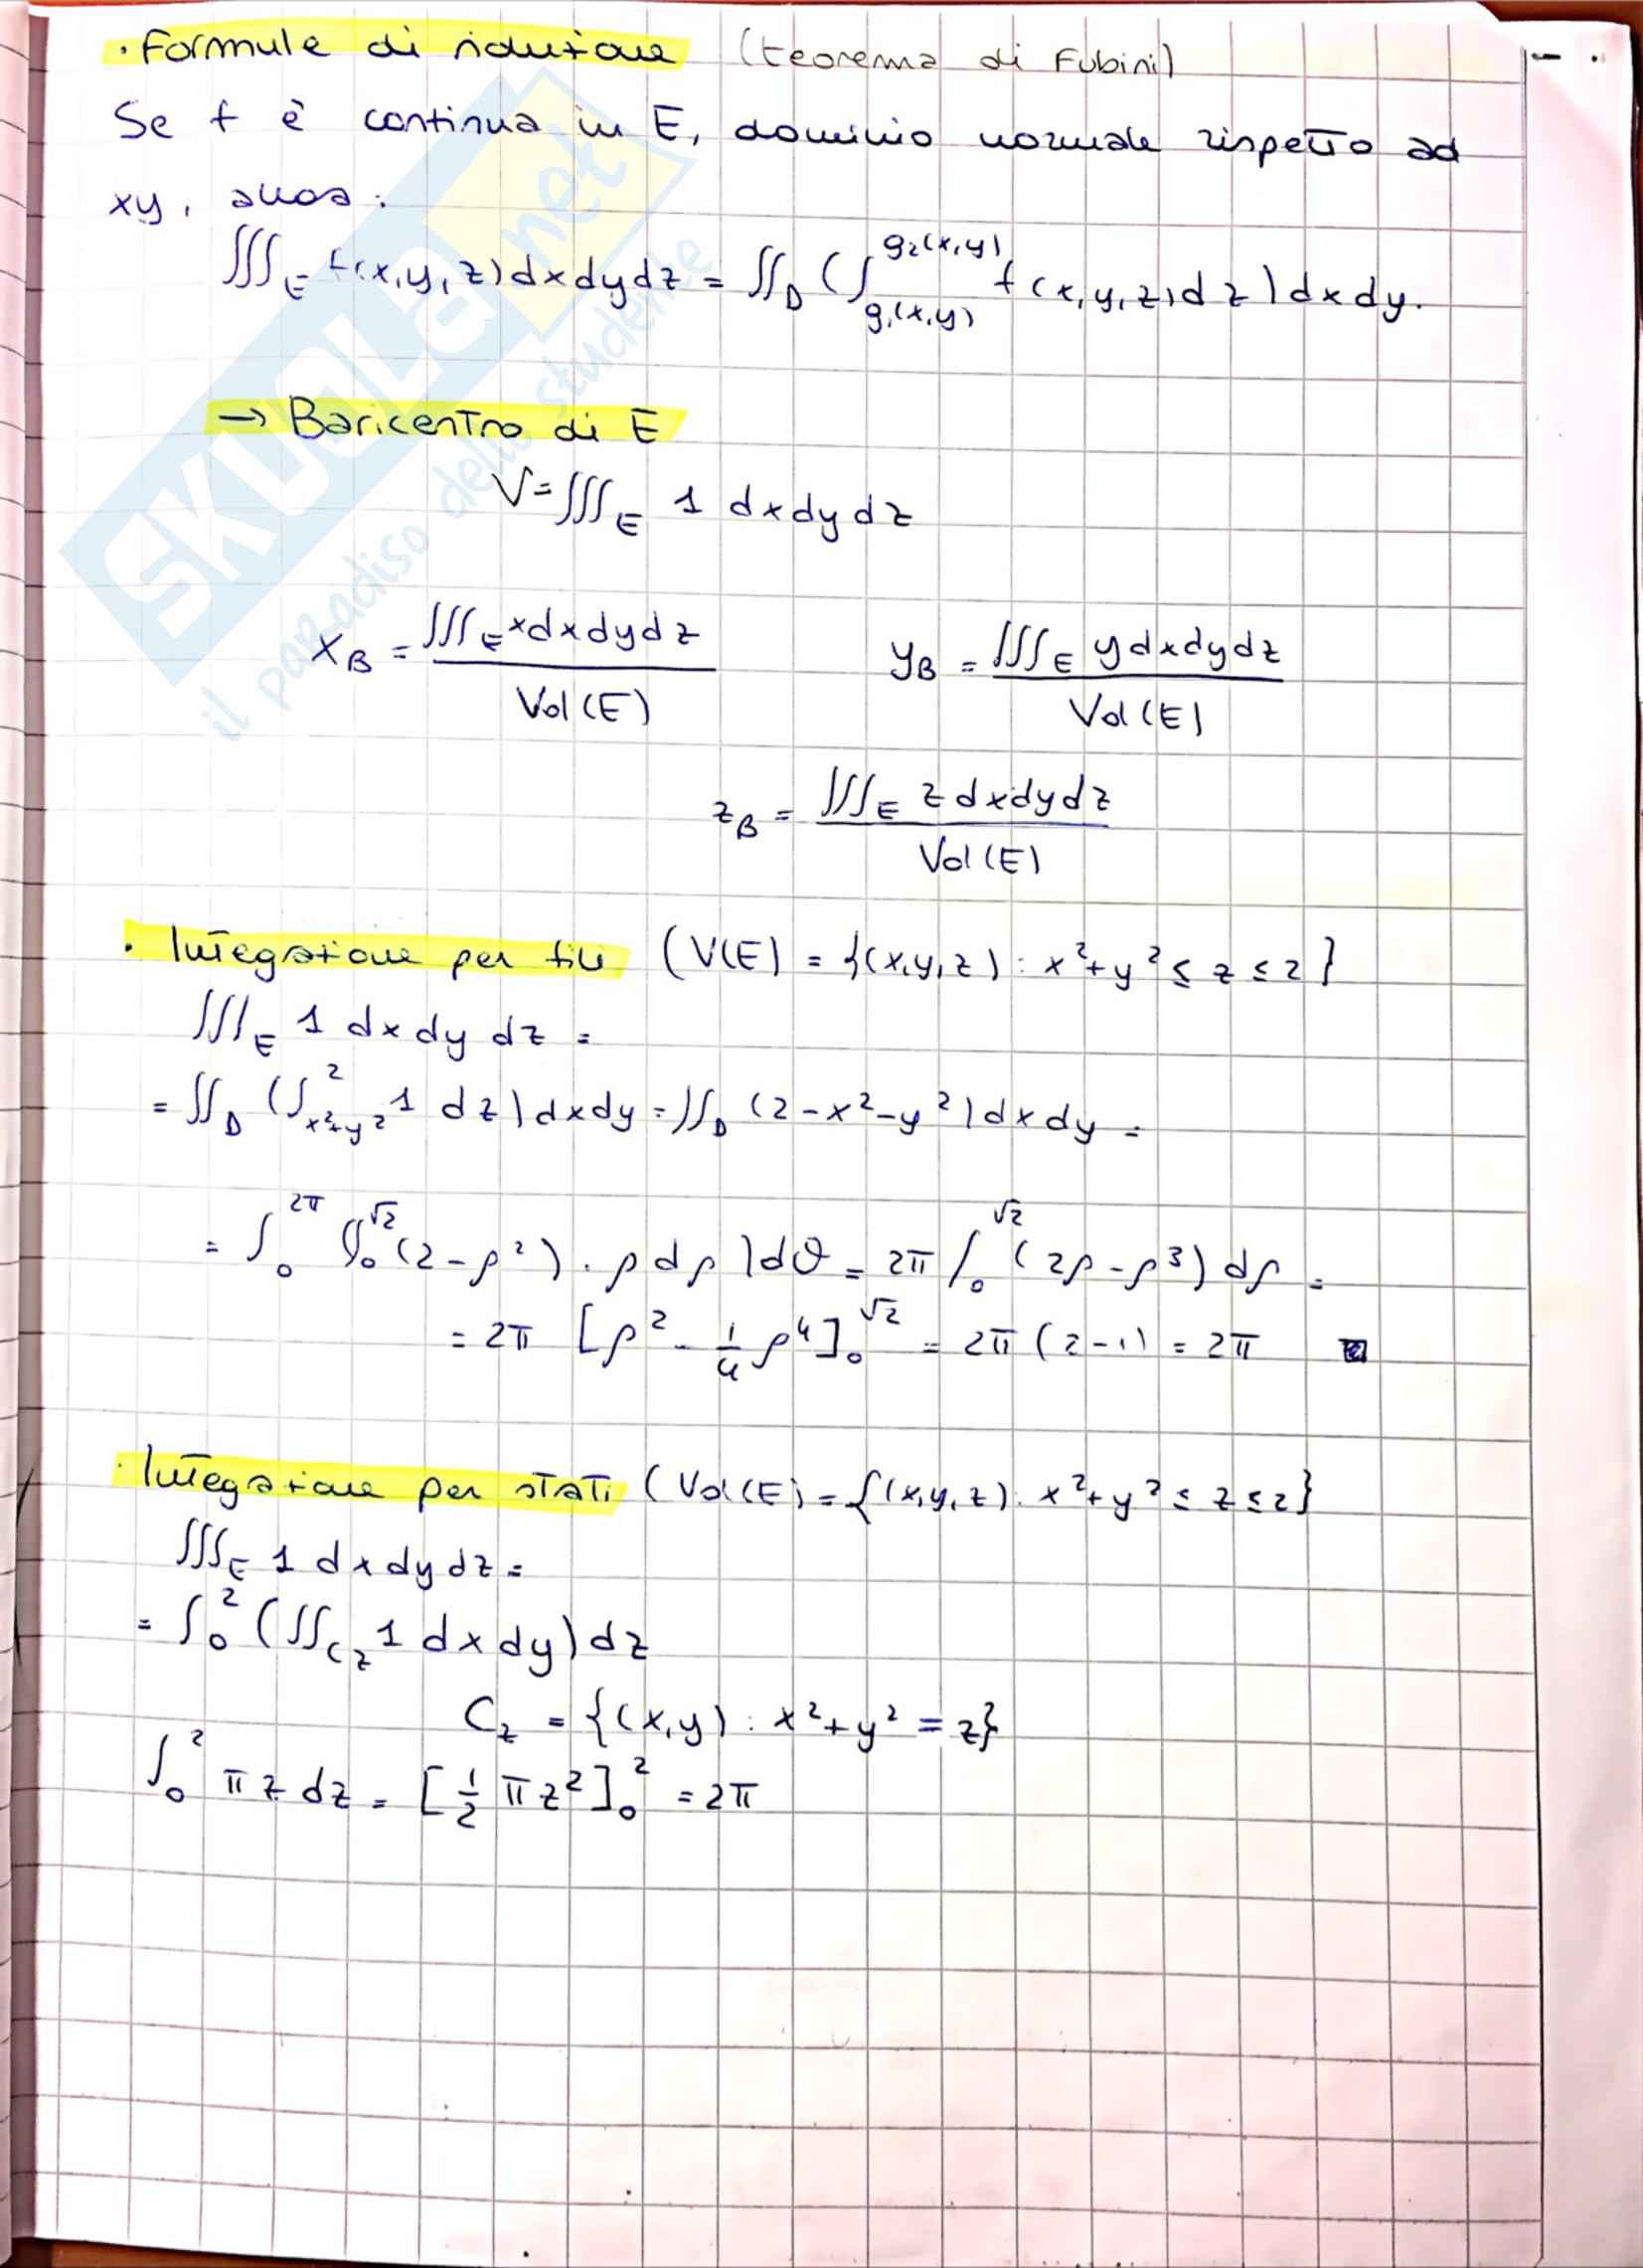 · Formule di riduzione (teorema di Fubini)
Se f è continua in E, dominio normale rispetto ad
xy, allora:
∭_E f(x,y,z)dxdydz = ∬_D (∫_{g₁(x,y)}^{g₂(x,y)} f(x,y,z)dz)dxdy.
→ Baricentro di E
V=∭_E 1 dxdydz
x_B = ∭_E xdxdydz / Vol(E)    y_B = ∭_E ydxdydz / Vol(E)
z_B = ∭_E zdxdydz / Vol(E)
· Integrazione per fili (V(E) = {(x,y,z) : x²+y² ≤ z ≤ 2}
∭_E 1 dxdy dz =
= ∬_D (∫_{x²+y²}^{2} 1 dz)dxdy = ∬_D (2-x²-y²)dxdy =
= ∫_0^{2π} (∫_0^{√2} (2-ρ²)·ρdρ)dθ = 2π ∫_0^{√2} (2ρ-ρ³)dρ =
= 2π [ρ² - 1/4 ρ⁴]_0^{√2} = 2π(2-1) = 2π
· Integrazione per strati (Vol(E) = {(x,y,z): x²+y² ≤ z ≤ 2}
∭_E 1 dxdydz =
= ∫_0^2 (∬_{C_z} 1 dxdy)dz
C_z = {(x,y) : x²+y² = z}
∫_0^2 πz dz = [1/2 πz²]_0^2 = 2π
SKUOLA.net
il paradiso dello studente